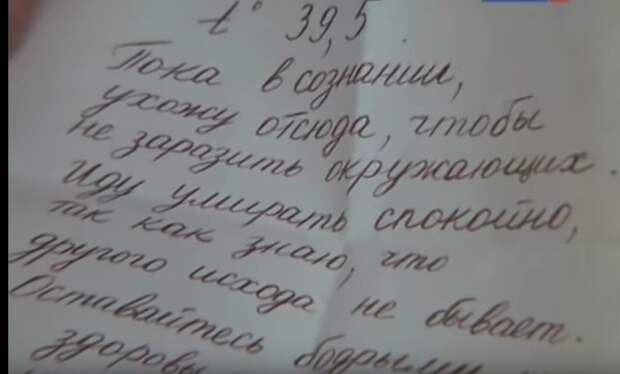 t° 39,5.
Пока в сознании,
ухожу отсюда, чтобы
не заразить окружающих.
Иду умирать спокойно,
так как знаю, что
другого исхода не бывает.
Оставайтесь бодрыми
здоровы